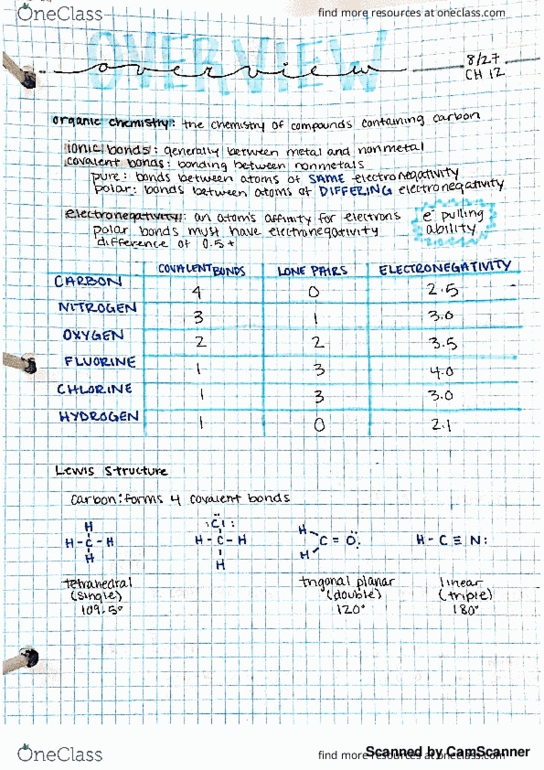 OneClass
find more resources at oneclass.com
OVERVIEW
overview
8/27
CH 12
organic chemistry: the chemistry of compounds containing carbon
ionic bonds: generally between metal and nonmetal
covalent bonds: bonding between nonmetals
pure: bonds between atoms of SAME electronegativity
polar: bonds between atoms of DIFFERING electronegativity
electronegativity: an atom's affinity for electrons
polar bonds must have electronegativity
difference of 0.5+
e⁻ pulling
ability
COVALENT BONDS LONE PAIRS ELECTRONEGATIVITY
CARBON 4 0 2.5
NITROGEN 3 1 3.0
OXYGEN 2 2 3.5
FLUORINE 1 3 4.0
CHLORINE 1 3 3.0
HYDROGEN 1 0 2.1
Lewis Structure
carbon: forms 4 covalent bonds
H :Cl: H
H-C-H H-C-H C=O: H-C≡N:
H H H
tetrahedral trigonal planar linear
(single) (double) (triple)
109.5° 120° 180°
OneClass
find more resources at oneclass.com
Scanned by CamScanner